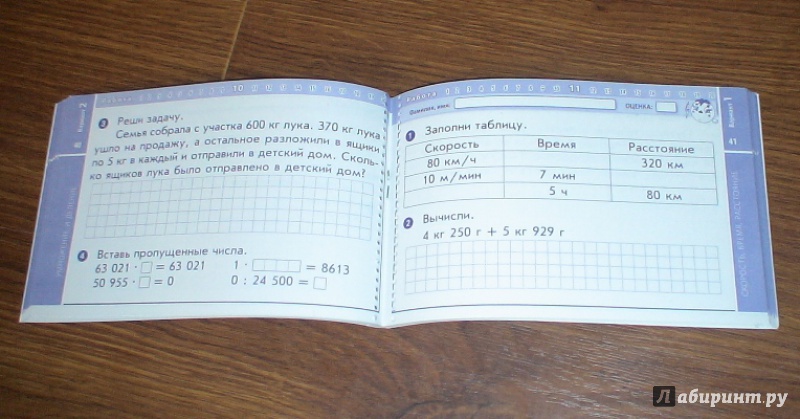 Работа 10
Вариант 2
3 Реши задачу.
Семья собрала с участка 600 кг лука. 370 кг лука
ушло на продажу, а остальное разложили в ящики
по 5 кг в каждый и отправили в детский дом. Сколь-
ко ящиков лука было отправлено в детский дом?
4 Вставь пропущенные числа.
63 021 · = 63 021 1 · = 8613
50 955 · = 0 0 : 24 500 =
УМНОЖЕНИЕ И ДЕЛЕНИЕ
Работа 1 2 3 4 5 6 7 8 9 10 11
Фамилия, имя: ОЦЕНКА:
Вариант 1
41
1 Заполни таблицу.
Скорость Время Расстояние
80 км/ч 320 км
10 м/мин 7 мин
5 ч 80 км
2 Вычисли.
4 кг 250 г + 5 кг 929 г
СКОРОСТЬ, ВРЕМЯ, РАССТОЯНИЕ
Лабиринт.ру